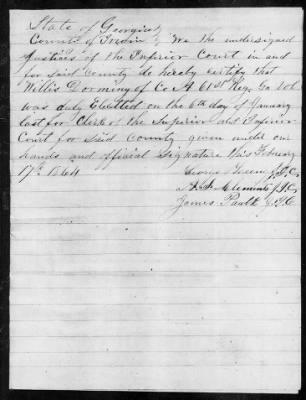 State of Georgia
County of Irwin We the undersigned
Justices of the Inferior Court in and
for said County do hereby certify that
Willis Dorming of Co A 61st Reg. Ga Vol
was duly Elected on the 6th day of January
last for Clerk of the Superior and Inferior
Court for said County given under our
hands and official Signature this February
17th 1864
George J.I.C.
Clements J.I.C.
James Paulk J.I.C.